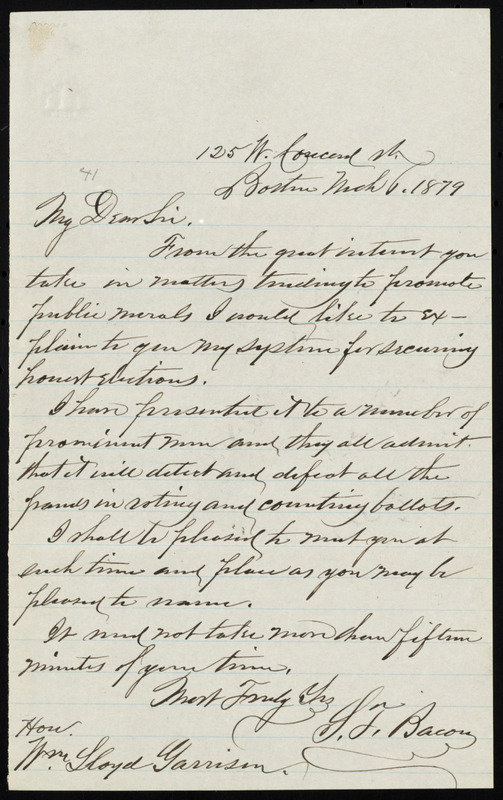 125 W. Concord st.
Boston Mch 6. 1879
41
My Dear Sir.
From the great interest you
take in matters tending to promote
public morals I would like to ex-
plain to you my system for securing
honest elections.
I have presented it to a number of
prominent men and they all admit
that it will detect and defeat all the
frauds in voting and counting ballots.
I shall be pleased to meet you at
such time and place as you may be
pleased to name.
It need not take more than fifteen
minutes of your time.
Most Truly Yrs
S. F. Bacon
Hon.
Wm. Lloyd Garrison.